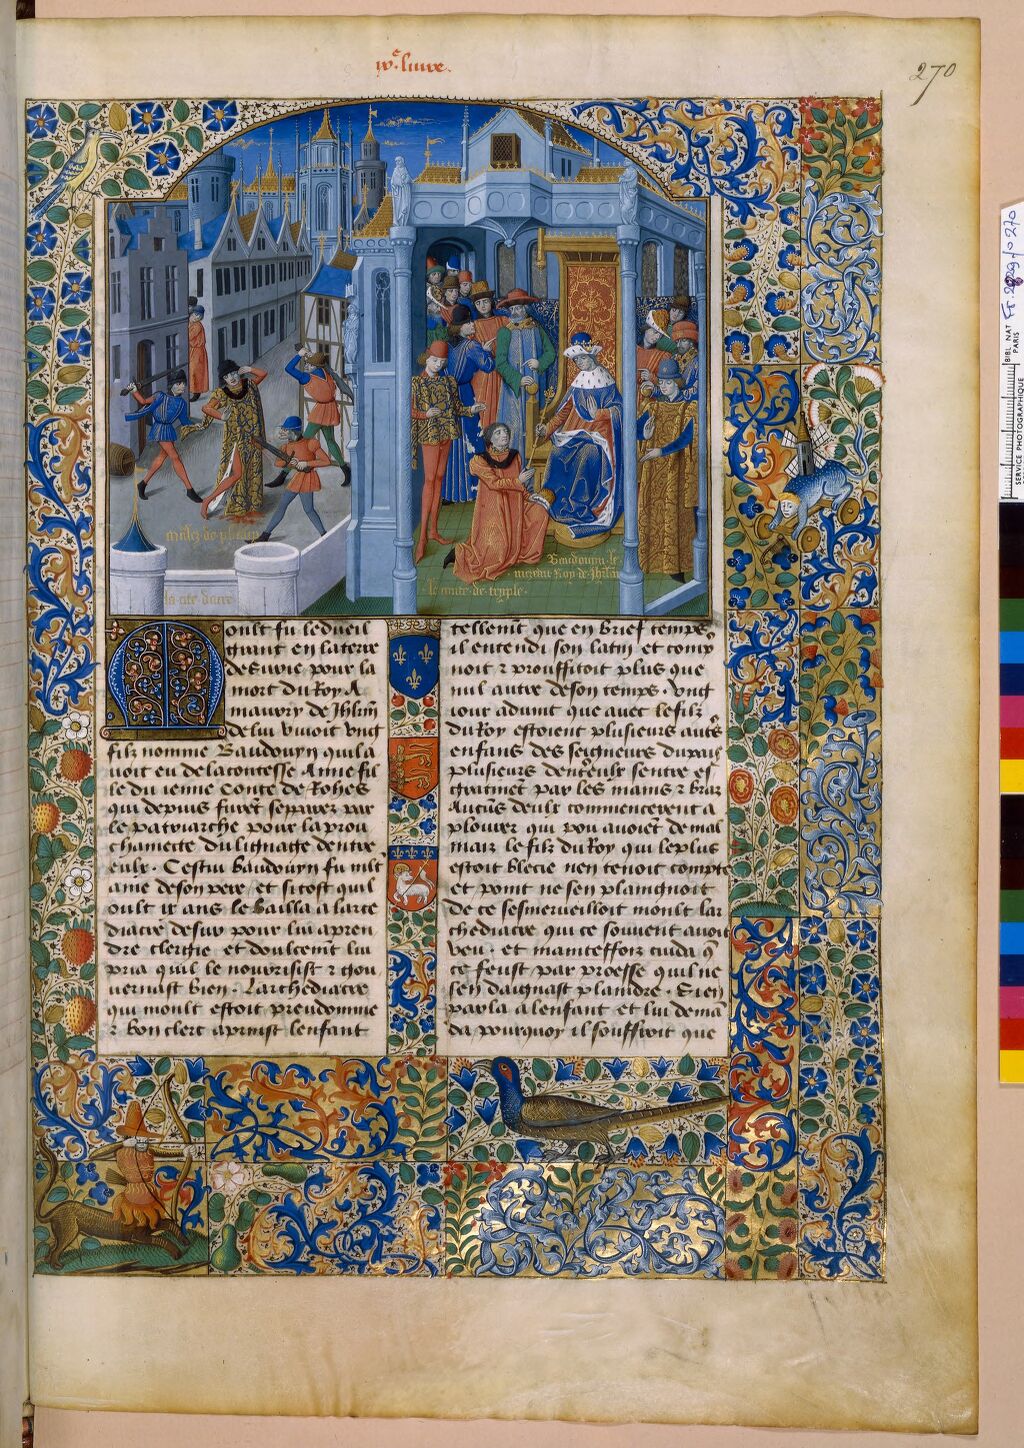 ix.e liure.
270
milez de plancy
la cite dacre
Baudouyn le
mezeau Roy de Jhrlm
le conte de triple.
Moult fu le dueil
grant en la terre
de Surie pour la
mort du Roy A
maury de Jhrlm
de lui viuoit vng
filz nomme Baudouyn quil a
uoit eu de la contesse Anne fil
le du ienne Conte de Rohes
qui depuis furent separez par
le patriarche pour la prou
chainete du lignage dentre
eulx. Cestui Baudouyn fu mlt
ame de son pere, et si tost quil
oult ix ans le bailla a larce
diacre de sur pour lui apren
dre clergie et doulcemt lui
pria quil le nourrisist et gou
uernast bien. Larchediacre
qui moult estoit preudomme
et bon clerc aprinst lenfant
tellemt que en brief temps
il entendi son latin et comp
noit et prouffitoit plus que
nul autre de son temps. Vng
iour aduint que auec le filz
du Roy estoient plusieurs autres
enfans des seigneurs du pays
plusieurs dentreulx sentre es
gratinet par les mains et braz
Aucuns deulx commencerent a
plourer qui pou auoiet de mal
mais le filz du Roy qui le plus
estoit blecie nen tenoit compte
et point ne sen plaingnoit
De ce sesmerueilloit moult lar
chediacre qui ce souuent auoit
veu. et maintesfoiz cuida que
ce feust par proesse quil ne
sen daignast plaindre. Si en
parla a lenfant et lui deman
da pourquoy il souffroit que
BIBL NAT
PARIS
SERVICE PHOTOGRAPHIQUE